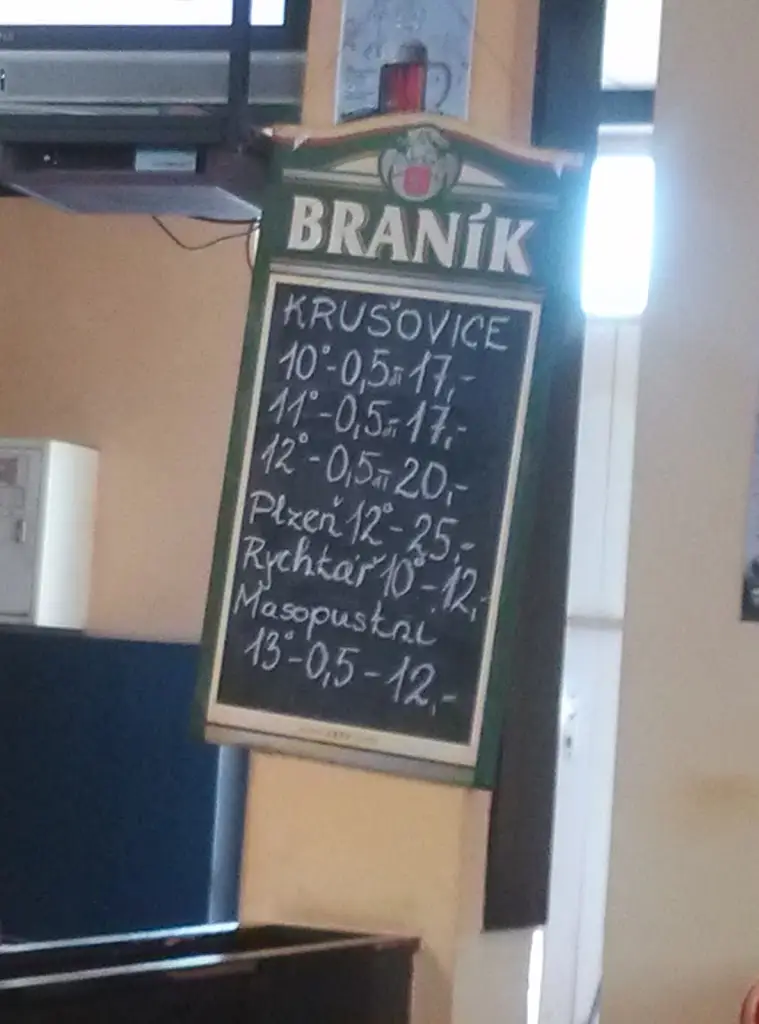 BRANÍK
KRUŠOVICE
10°-0,5 dl 17,-
11°-0,5 dl 17,-
12°-0,5 dl 20,-
Plzeň 12°-25,-
Rychtář 10°-12,-
Masopustní
13°-0,5-12,-